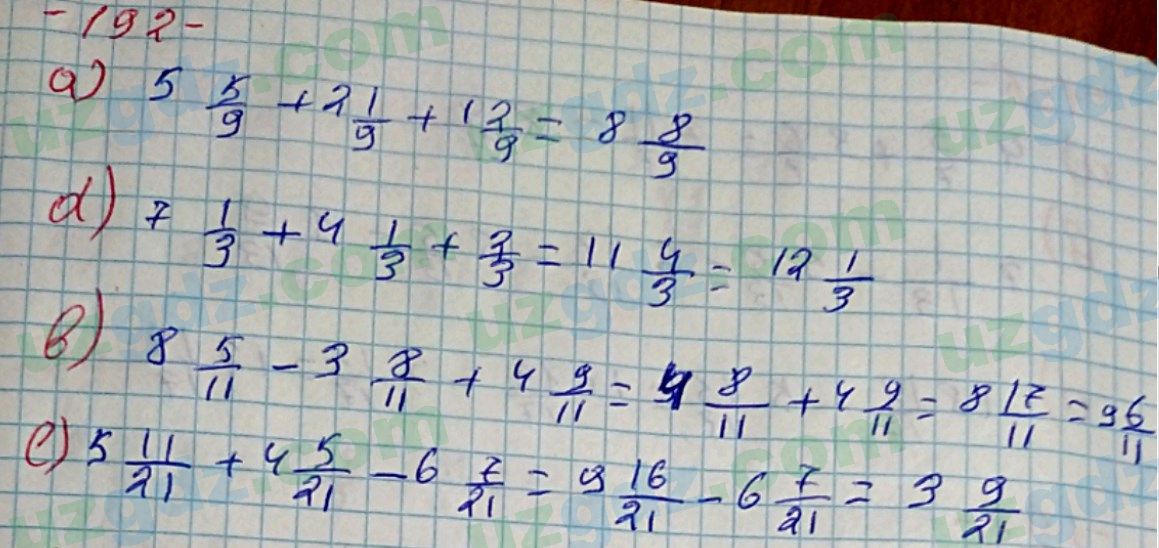 -192-
a) 5 5/9 + 2 1/9 + 1 2/9 = 8 8/9
d) 7 1/3 + 4 1/3 + 2/3 = 11 4/3 = 12 1/3
b) 8 5/11 - 3 8/11 + 4 9/11 = 4 8/11 + 4 9/11 = 8 17/11 = 9 6/11
e) 5 11/21 + 4 5/21 - 6 7/21 = 9 16/21 - 6 7/21 = 3 9/21
uzgdz.com